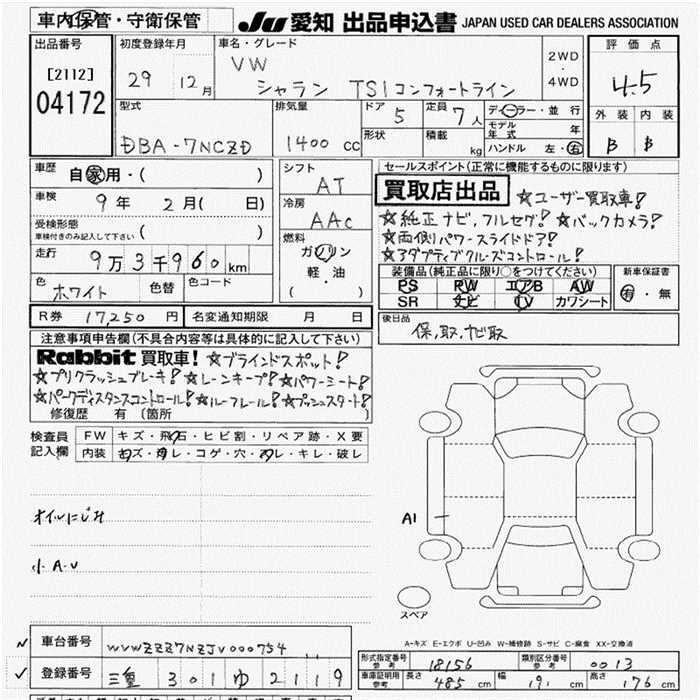 車内保管・守衛保管
JU 愛知 出品申込書 JAPAN USED CAR DEALERS ASSOCIATION
出品番号
[2112]
04172
初度登録年月
29 12月
車名・グレード
VW
シャラン TSIコンフォートライン
2WD
・
4WD
評価点
4.5
外装 内装
B B
型式
DBA-7NCZD
排気量
1400 cc
ドア 5
定員 7人
形状
積載 kg
ディーラー・並行
モデル年式 年
ハンドル 左・右
車歴
自家用・( )
車検
9年 2月( 日)
受検形態
車検付きのみ記入して下さい ( )
走行
9万3千960km
色
ホワイト
色替
色コード
R券 17,250 円
名変通知期限 月 日
シフト
AT
冷房
AAC
燃料
ガソリン
軽・油
( )
セールスポイント(正常に機能するものに限ります)
買取店出品 ☆ユーザー買取車!
☆純正ナビ,フルセグ! ☆バックカメラ!
☆両側パワースライドドア!
☆アダプティブクルーズコントロール!
装備品(純正品に限り○をつけてください)
PS PW エアB AW
SR ナビ TV カワシート
新車保証書
有・無
後日品
保,取,ナビ取
注意事項申告欄(不具合内容等は具体的に記入して下さい)
Rabbit 買取車! ☆ブラインドスポット!
☆プリクラッシュブレーキ! ☆レーンキープ! ☆パワーシート!
☆パークディスタンスコントロール! ☆ルーフレール! ☆プッシュスタート!
修復歴 有 〔箇所 〕
検査員
記入欄
FW キズ・飛石・ヒビ割・リペア跡・X要
内装 キズ・汚レ・コゲ・穴・スレ・キレ・破レ
オイルにじみ
小A・U
A1
スペア
A-キズ E-エクボ U-凹み W-補修跡 S-サビ C-腐食 XX-交換済
車台番号 WVWZZZ7NZJV000754
登録番号 三重 301 ゆ 2119
形式指定番号
参考
18156
類別区分番号
参考
0013
車庫証明用
参考
長さ 485 cm
幅 191 cm
高さ 176 cm